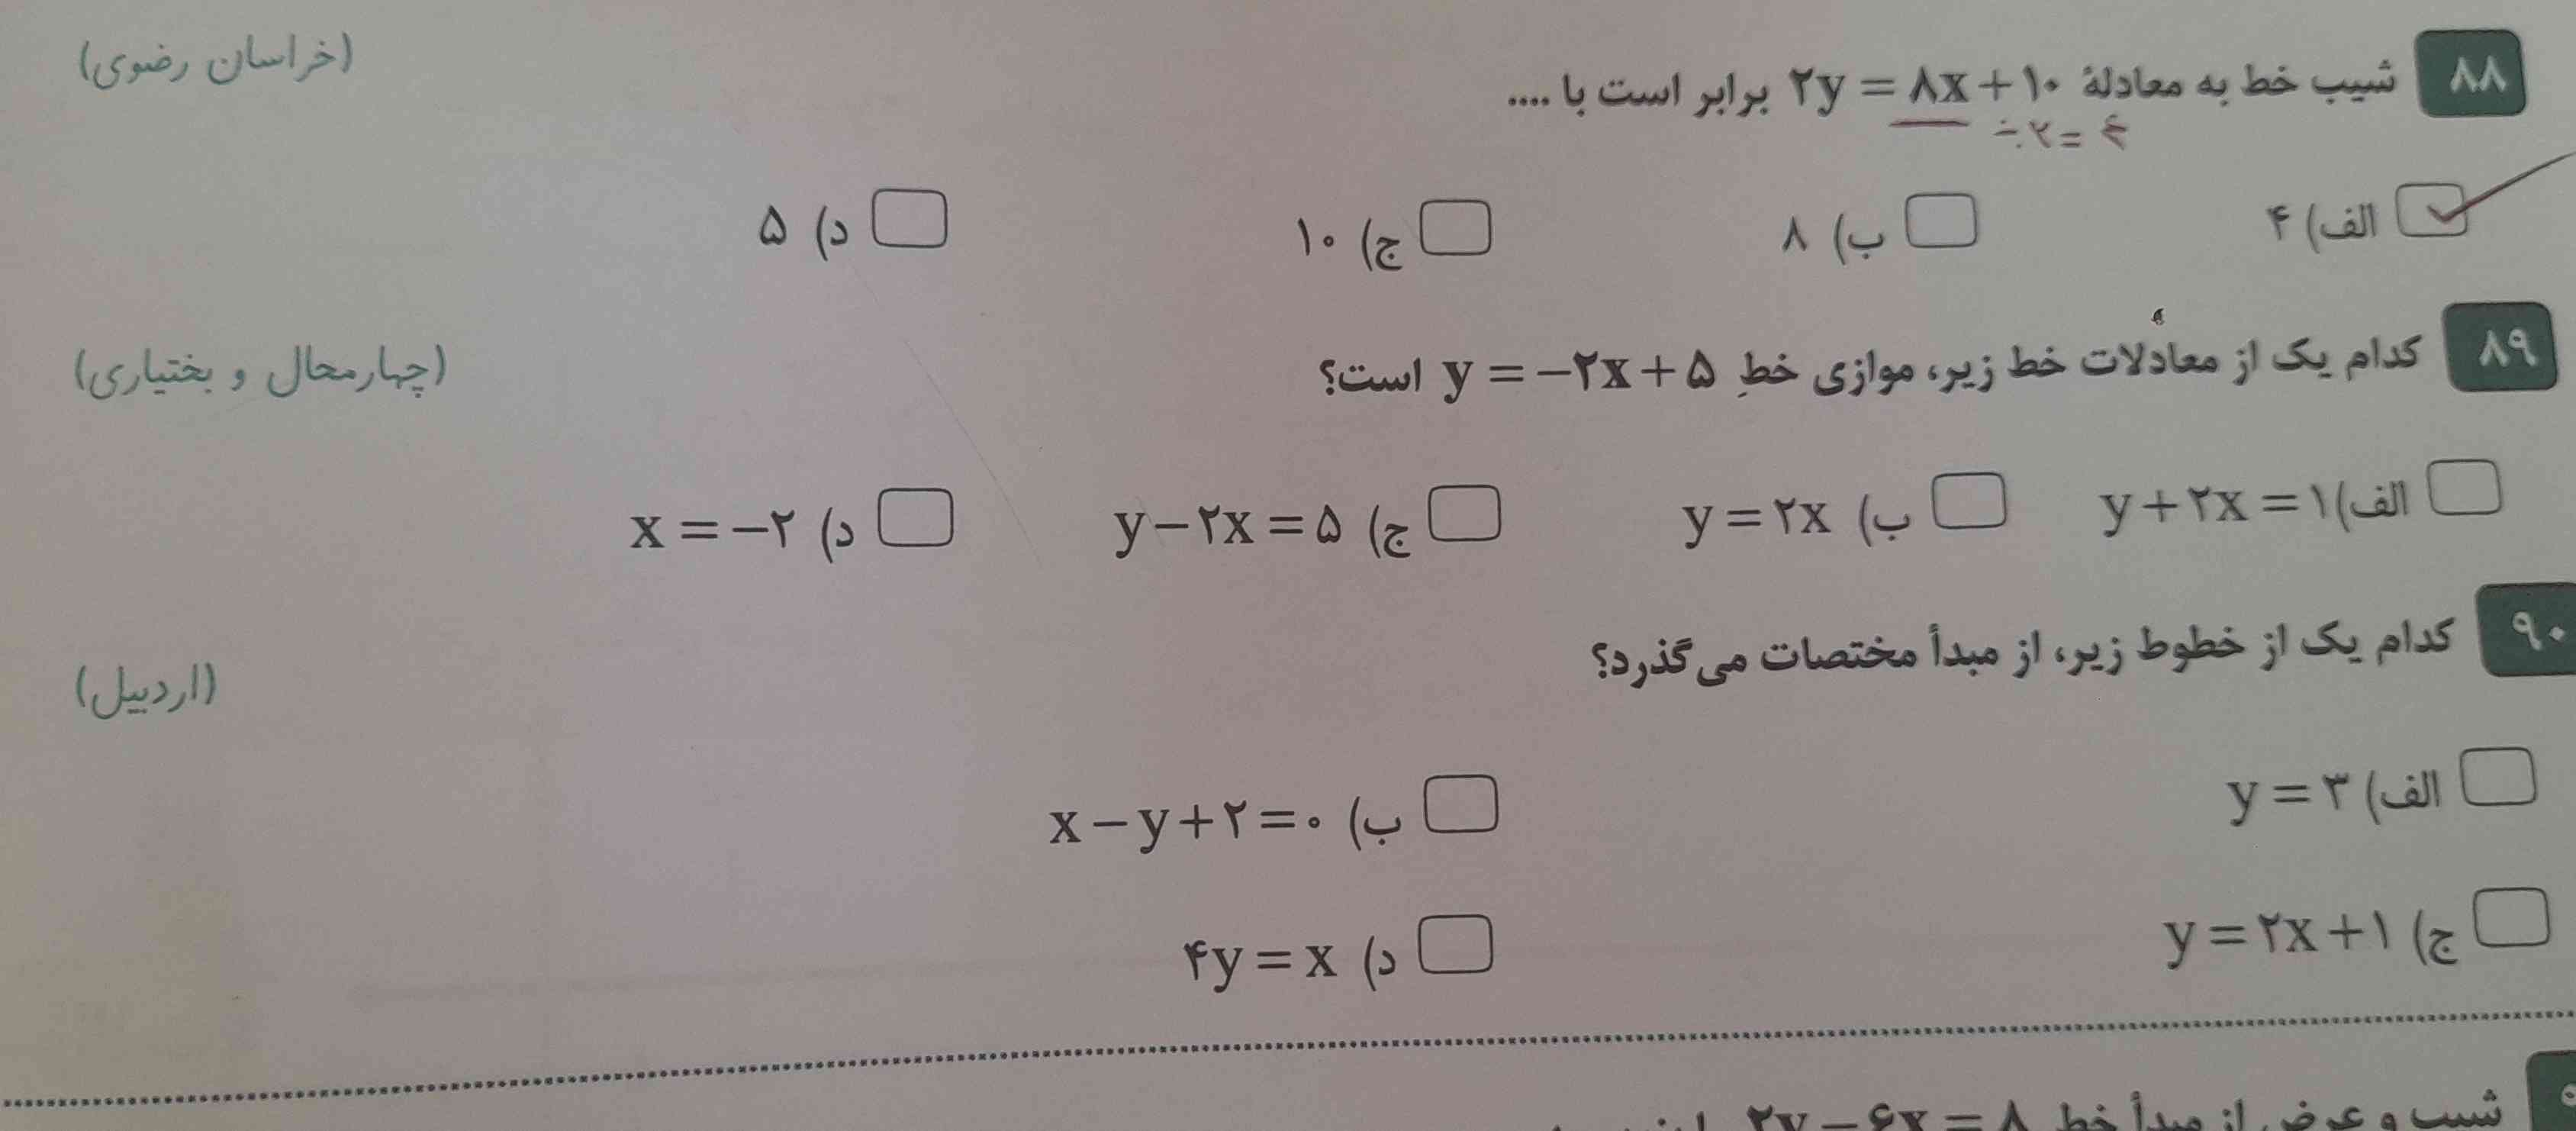 ۸۸ شیب خط به معادلهٔ ۲y = ۸x + ۱۰ برابر است با .... (خراسان رضوی)
÷۲ = ۴
الف) ۴ ب) ۸ ج) ۱۰ د) ۵
۸۹ کدام یک از معادلات خط زیر، موازی خطِ y = −۲x + ۵ است؟ (چهارمحال و بختیاری)
الف) y + ۲x = ۱ ب) y = ۲x ج) y − ۲x = ۵ د) x = −۲
۹۰ کدام یک از خطوط زیر، از مبدأ مختصات می‌گذرد؟ (اردبیل)
الف) y = ۳ ب) x − y + ۲ = ۰
ج) y = ۲x + ۱ د) ۴y = x
شیب و عرض از مبدأ خط ۲y − ۶x = ۸